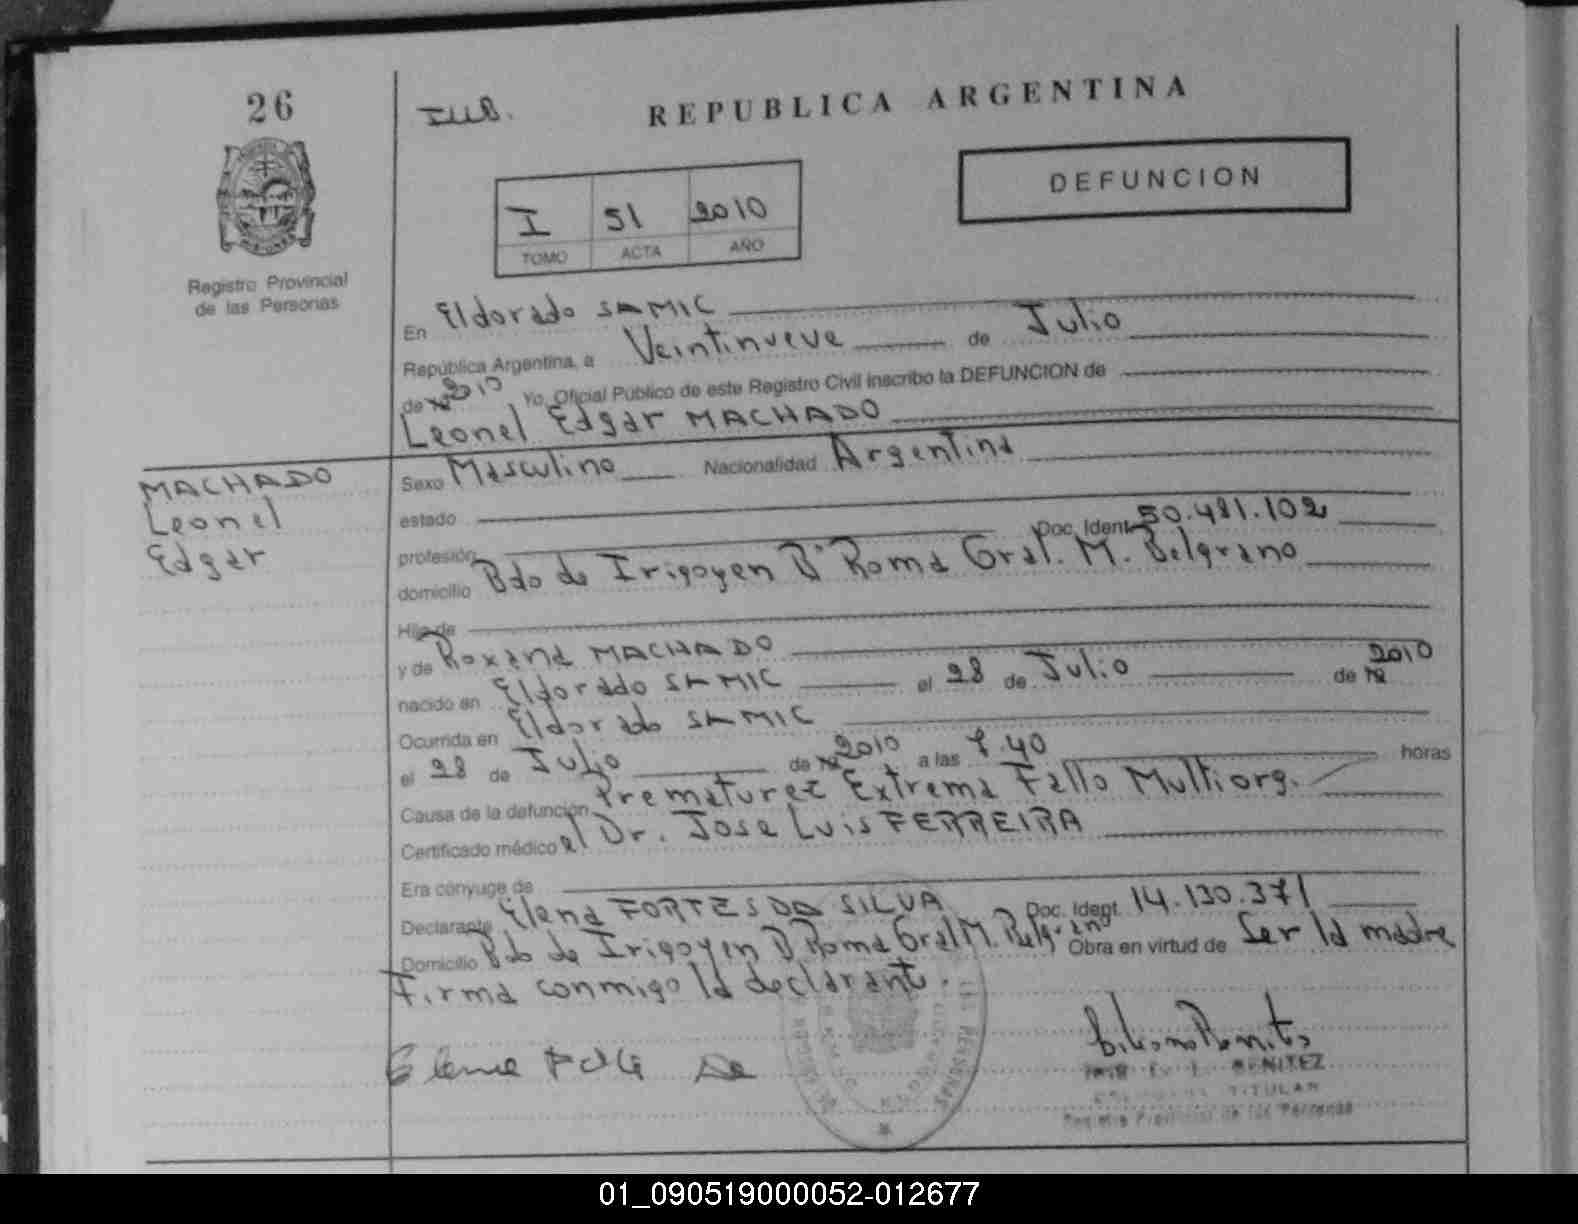 26
REPUBLICA ARGENTINA
DEFUNCION
I 51 2010
TOMO ACTA AÑO
Registro Provincial
de las Personas
En Eldorado SAMIC
República Argentina, a Veintinueve de Julio
de 2010 Yo, Oficial Público de este Registro Civil inscribo la DEFUNCION de
Leonel Edgar MACHADO
MACHADO
Leonel
Edgar
Sexo Masculino Nacionalidad Argentina
estado
profesión Doc. Ident. 50.481.102
domicilio Bdo de Irigoyen Bº Roma Gral. M. Belgrano
Hijo de
y de Roxana MACHADO
nacido en Eldorado SAMIC el 28 de Julio de 2010
Ocurrida en Eldorado SAMIC
el 28 de Julio de 2010 a las 7.40 horas
Causa de la defunción Prematurez Extrema Fallo Multiorg.
Certificado médico el Dr. Jose Luis FERREIRA
Era cónyuge de
Declarante Elena FORTES DA SILVA Doc. Ident. 14.130.371
Domicilio Bdo de Irigoyen B Roma Gral M. Belgrano Obra en virtud de Ser la madre
Firma conmigo la declarante.
Elena
BENITEZ
TITULAR
Registro Provincial de las Personas
01_090519000052-012677